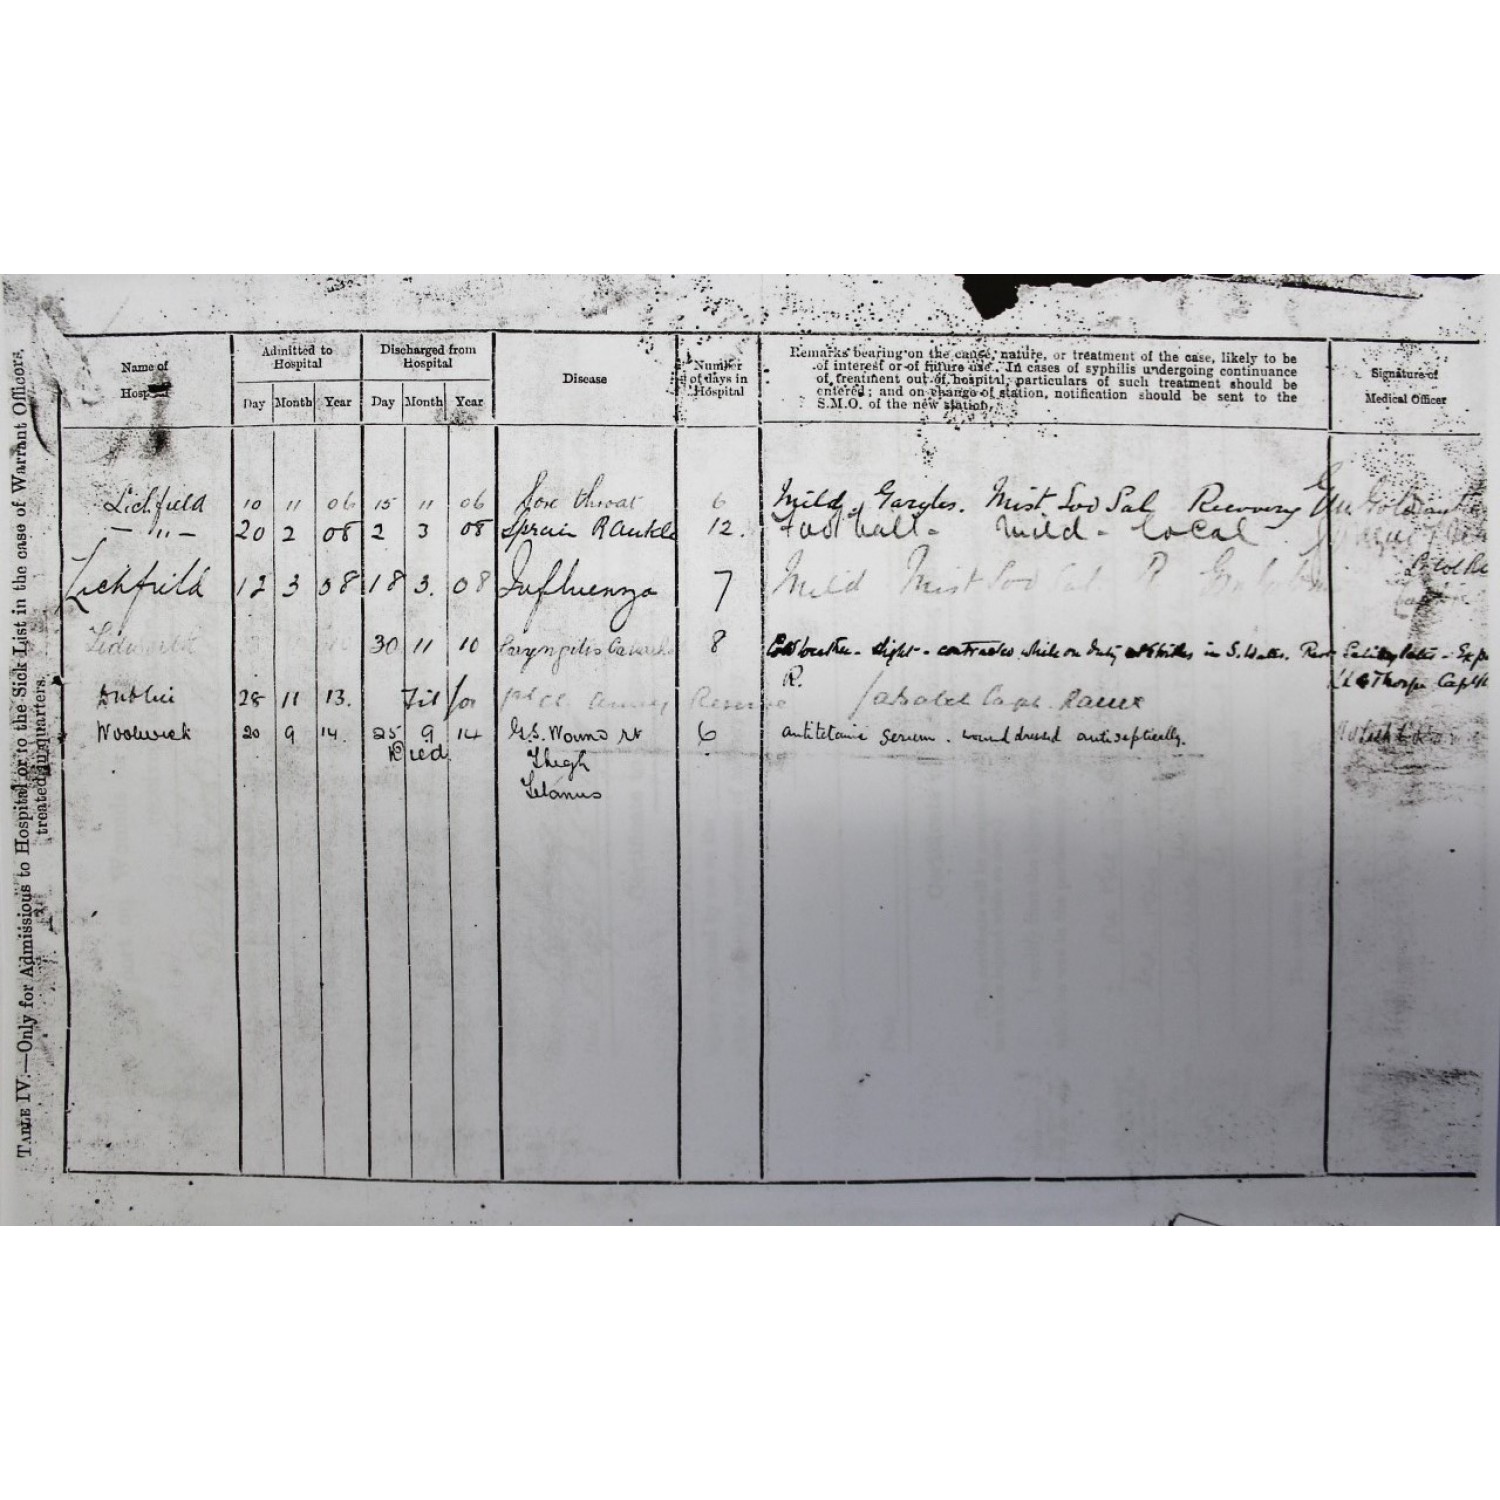 TABLE IV.—Only for Admissions to Hospital or to the Sick List in the case of Warrant Officers,
treated in quarters.
Name of
Hospital
Admitted to
Hospital
Day Month Year
Discharged from
Hospital
Day Month Year
Disease
Number
of days in
Hospital
Remarks bearing on the cause, nature, or treatment of the case, likely to be
of interest or of future use. In cases of syphilis undergoing continuance
of treatment out of hospital, particulars of such treatment should be
entered; and on change of station, notification should be sent to the
S.M.O. of the new station.
Signature of
Medical Officer
Lichfield 10 11 06 15 11 06 Sore throat 6 Mild. Gargles. Mist Sod Sal Recovery
— " — 20 2 08 2 3 08 Sprain R Ankle 12. Football - Mild - local
Lichfield 12 3 08 18 3. 08 Influenza 7 Mild Mist Sod Sal R
30 11 10 Laryngitis 8 slight - contracted while on duty at Strikes in S. Wales.
R. Thorpe Capt
Dublin 28 11 13. Fit for Army Reserve Capt. RAMC
Woolwich 20 9 14. 25 9 14 G.S. Wound rt 6 antitetanic serum. wound dressed antiseptically.
Died. Thigh
Tetanus